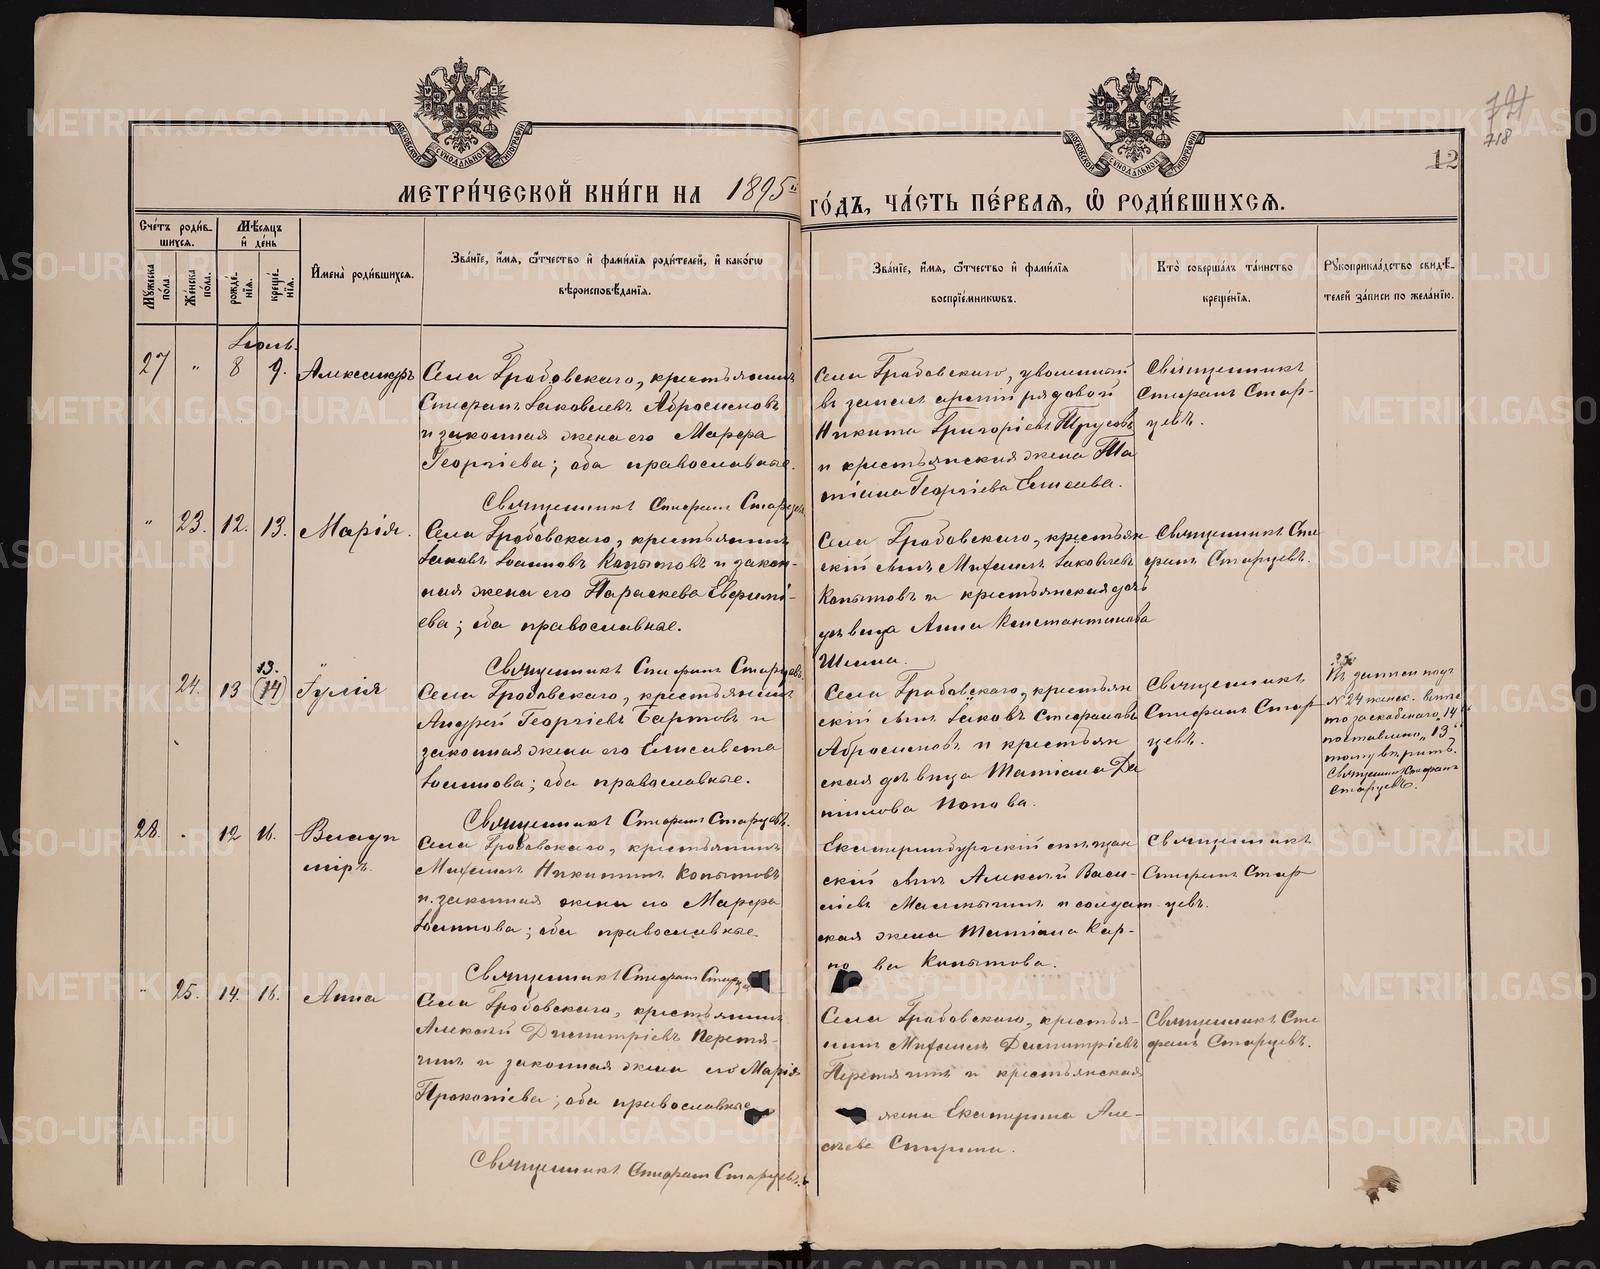 МЕТРИ́ЧЕСКОЙ КНИ́ГИ НА 1895й ГО́ДЪ, ЧА́СТЬ ПЕ́РВАЯ, Ѡ҆ РОДИ́ВШИХСЯ.
718
12
Сче́тъ роди́в-
шихся.
Му́жеска по́ла.
Же́нска по́ла.
Мѣ́сяцъ и҆ де́нь
рожде́-
нїя.
креще́-
нїя.
И҆мена̀ роди́вшихся.
Зва́нїе, и҆́мя, ѻ҆́тчество и҆ фами́лїя роди́телей, и҆ како́гѡ
вѣроисповѣ́данїя.
Зва́нїе, и҆́мя, ѻ҆́тчество и҆ фами́лїя
воспрїе́мникѡвъ.
Кто̀ соверша́лъ та́инство
креще́нїя.
Рꙋкоприкла́дство свидѣ́-
телей за́писи по жела́нїю.
Іюль.
27 " 8 9. Александръ
Села Гробовскаго, крестьянинъ
Стефанъ Іаковлевъ Абросимовъ
и законная жена его Марфа
Георгіева; оба православные.
Священникъ Стефанъ Старцевъ
Села Гробовскаго, уволенный
въ запасъ арміи рядовой
Никита Григоріевъ Трусовъ
и крестьянская жена Та
тіана Георгіева Елисеева.
Священникъ
Стефанъ Стар-
цевъ.
" 23. 12. 13. Марія.
Села Гробовскаго, крестьянинъ
Іаковъ Іоанновъ Копытовъ и закон-
ная жена его Параскева Евфимі-
ева; оба православные.
Священникъ Стефанъ Старцевъ.
Села Гробовскаго, крестьян
скій сынъ Михаилъ Іаковлевъ
Копытовъ и крестьянская дочь
дѣвица Анна Константинова
Шеина.
Священникъ Сте
фанъ Старцевъ.
24. 13 13. (14) Іулія
Села Гробовскаго, крестьянинъ
Андрей Георгіевъ Бартовъ и
законная жена его Елисавета
Іоаннова; оба православные.
Священникъ Стефанъ Старцевъ.
Села Гробовскаго, крестьян
скій сынъ Іаковъ Стефановъ
Абросимовъ и крестьян
ская дѣвица Татіана Да
ніилова Попова.
Священникъ
Стефанъ Стар-
цевъ.
Въ записи подъ
№ 24 женск. вмѣс
то заскобленаго "14"
поставлено "13"
тому вѣрить.
Священникъ Стефанъ
Старцевъ.
28. " 12 16. Влади
міръ.
Села Гробовскаго, крестьянинъ
Михаилъ Никитинъ Копытовъ
и законная жена его Марфа
Іоаннова; оба православные
Священникъ Стефанъ Старце
Екатеринбургскій мѣщан
скій сынъ Алексѣй Васи-
ліевъ и солдат
ская жена Татіана Кар-
по ва Копытова.
Священникъ
Стефанъ Стар
цевъ.
" 25. 14. 16. Анна
Села Гробовскаго, крестьянинъ
Алексѣй Димитріевъ Перетя-
гинъ и законная жена его Марія
Прокопіева; оба православные
Священникъ Стефанъ Старцевъ.
Села Гробовскаго, крестья-
нинъ Михаилъ Димитріевъ
Перетягинъ и крестьянская
жена Екатерина Але-
ксѣева
Священникъ Сте
фанъ Старцевъ.
METRIKI.GASO-URAL.RU